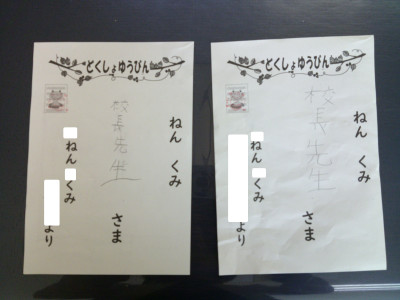 どくしょゆうびん
ねん くみ
校長先生
さま
ねん くみ
より
どくしょゆうびん
ねん くみ
校長先生
さま
ねん くみ
より